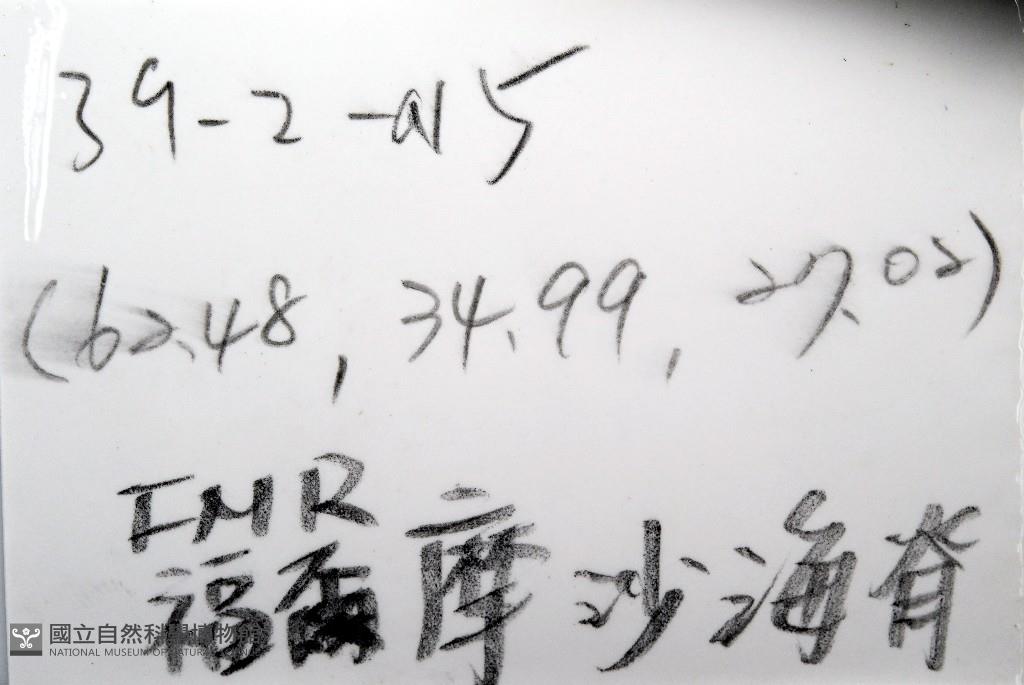 39-2-a15
(62.48, 34.99, 27.02)
IMR
福爾摩沙海脊
國立自然科學博物館
NATIONAL MUSEUM OF NATURAL SCIENCE